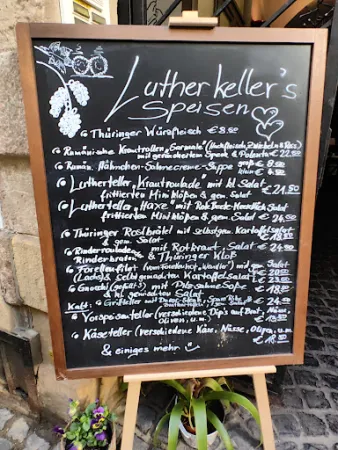 Lutherkeller's
Speisen
Thüringer Würzfleisch € 8.50
Rumänische Krautrollen „Sarmale" (Hackfleisch, Zwiebeln & Reis)
mit geräuchertem Speck & Polenta € 22.50
Rumän. Hähnchen-Sahnecreme-Suppe groß
klein €
Lutherteller „Krautroulade mit kl. Salat
frittierten Mini Klößen & gem. Salat € 21.50
Lutherteller „Haxe" mit
frittierten Mini Klößen & gem. Salat € 26.50
Thüringer Rostbrätl mit selbstgem. Kartoffelsalat
& gem. Salat € 18.50
Rinderroulade mit Rotkraut, Salat € 24.50
Rinderbraten & Thüringer Kloß
Forellenfilet (vom mit gem. Salat
(Lachs) & selbstgemachten Kartoffelsalat €
Gnocchi mit Pilzsahne Soße
& kl. gemischten Salat € 18.50
Grillteller mit
€ 24.50
Kalt:
Vorspeisenteller (verschiedene Dip's auf Brot, Nüsse
Oliven, u.m.) € 18.50
Käseteller (verschiedene Käse, Nüsse, Oliven, u.m.
€ 18.50
& einiges mehr